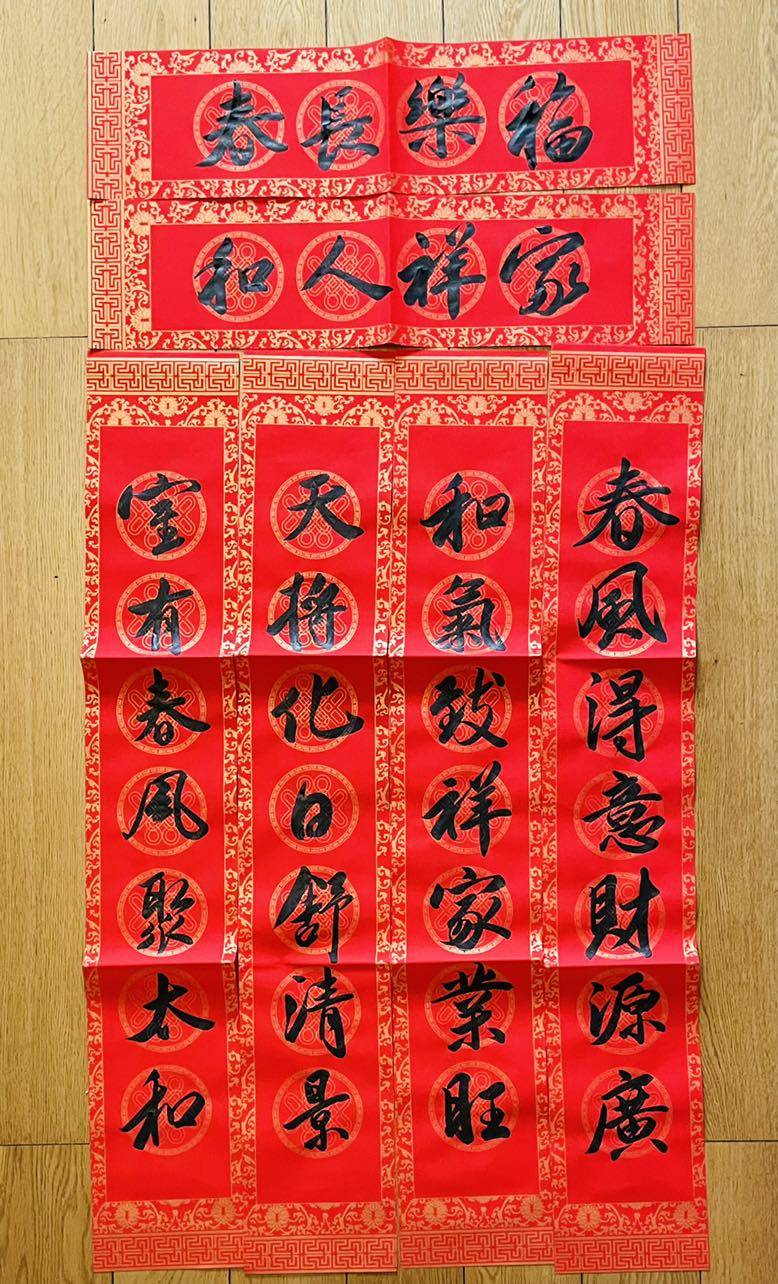 福樂長春
家祥人和
春風得意財源廣
和氣致祥家業旺
天將化日舒清景
室有春風聚太和